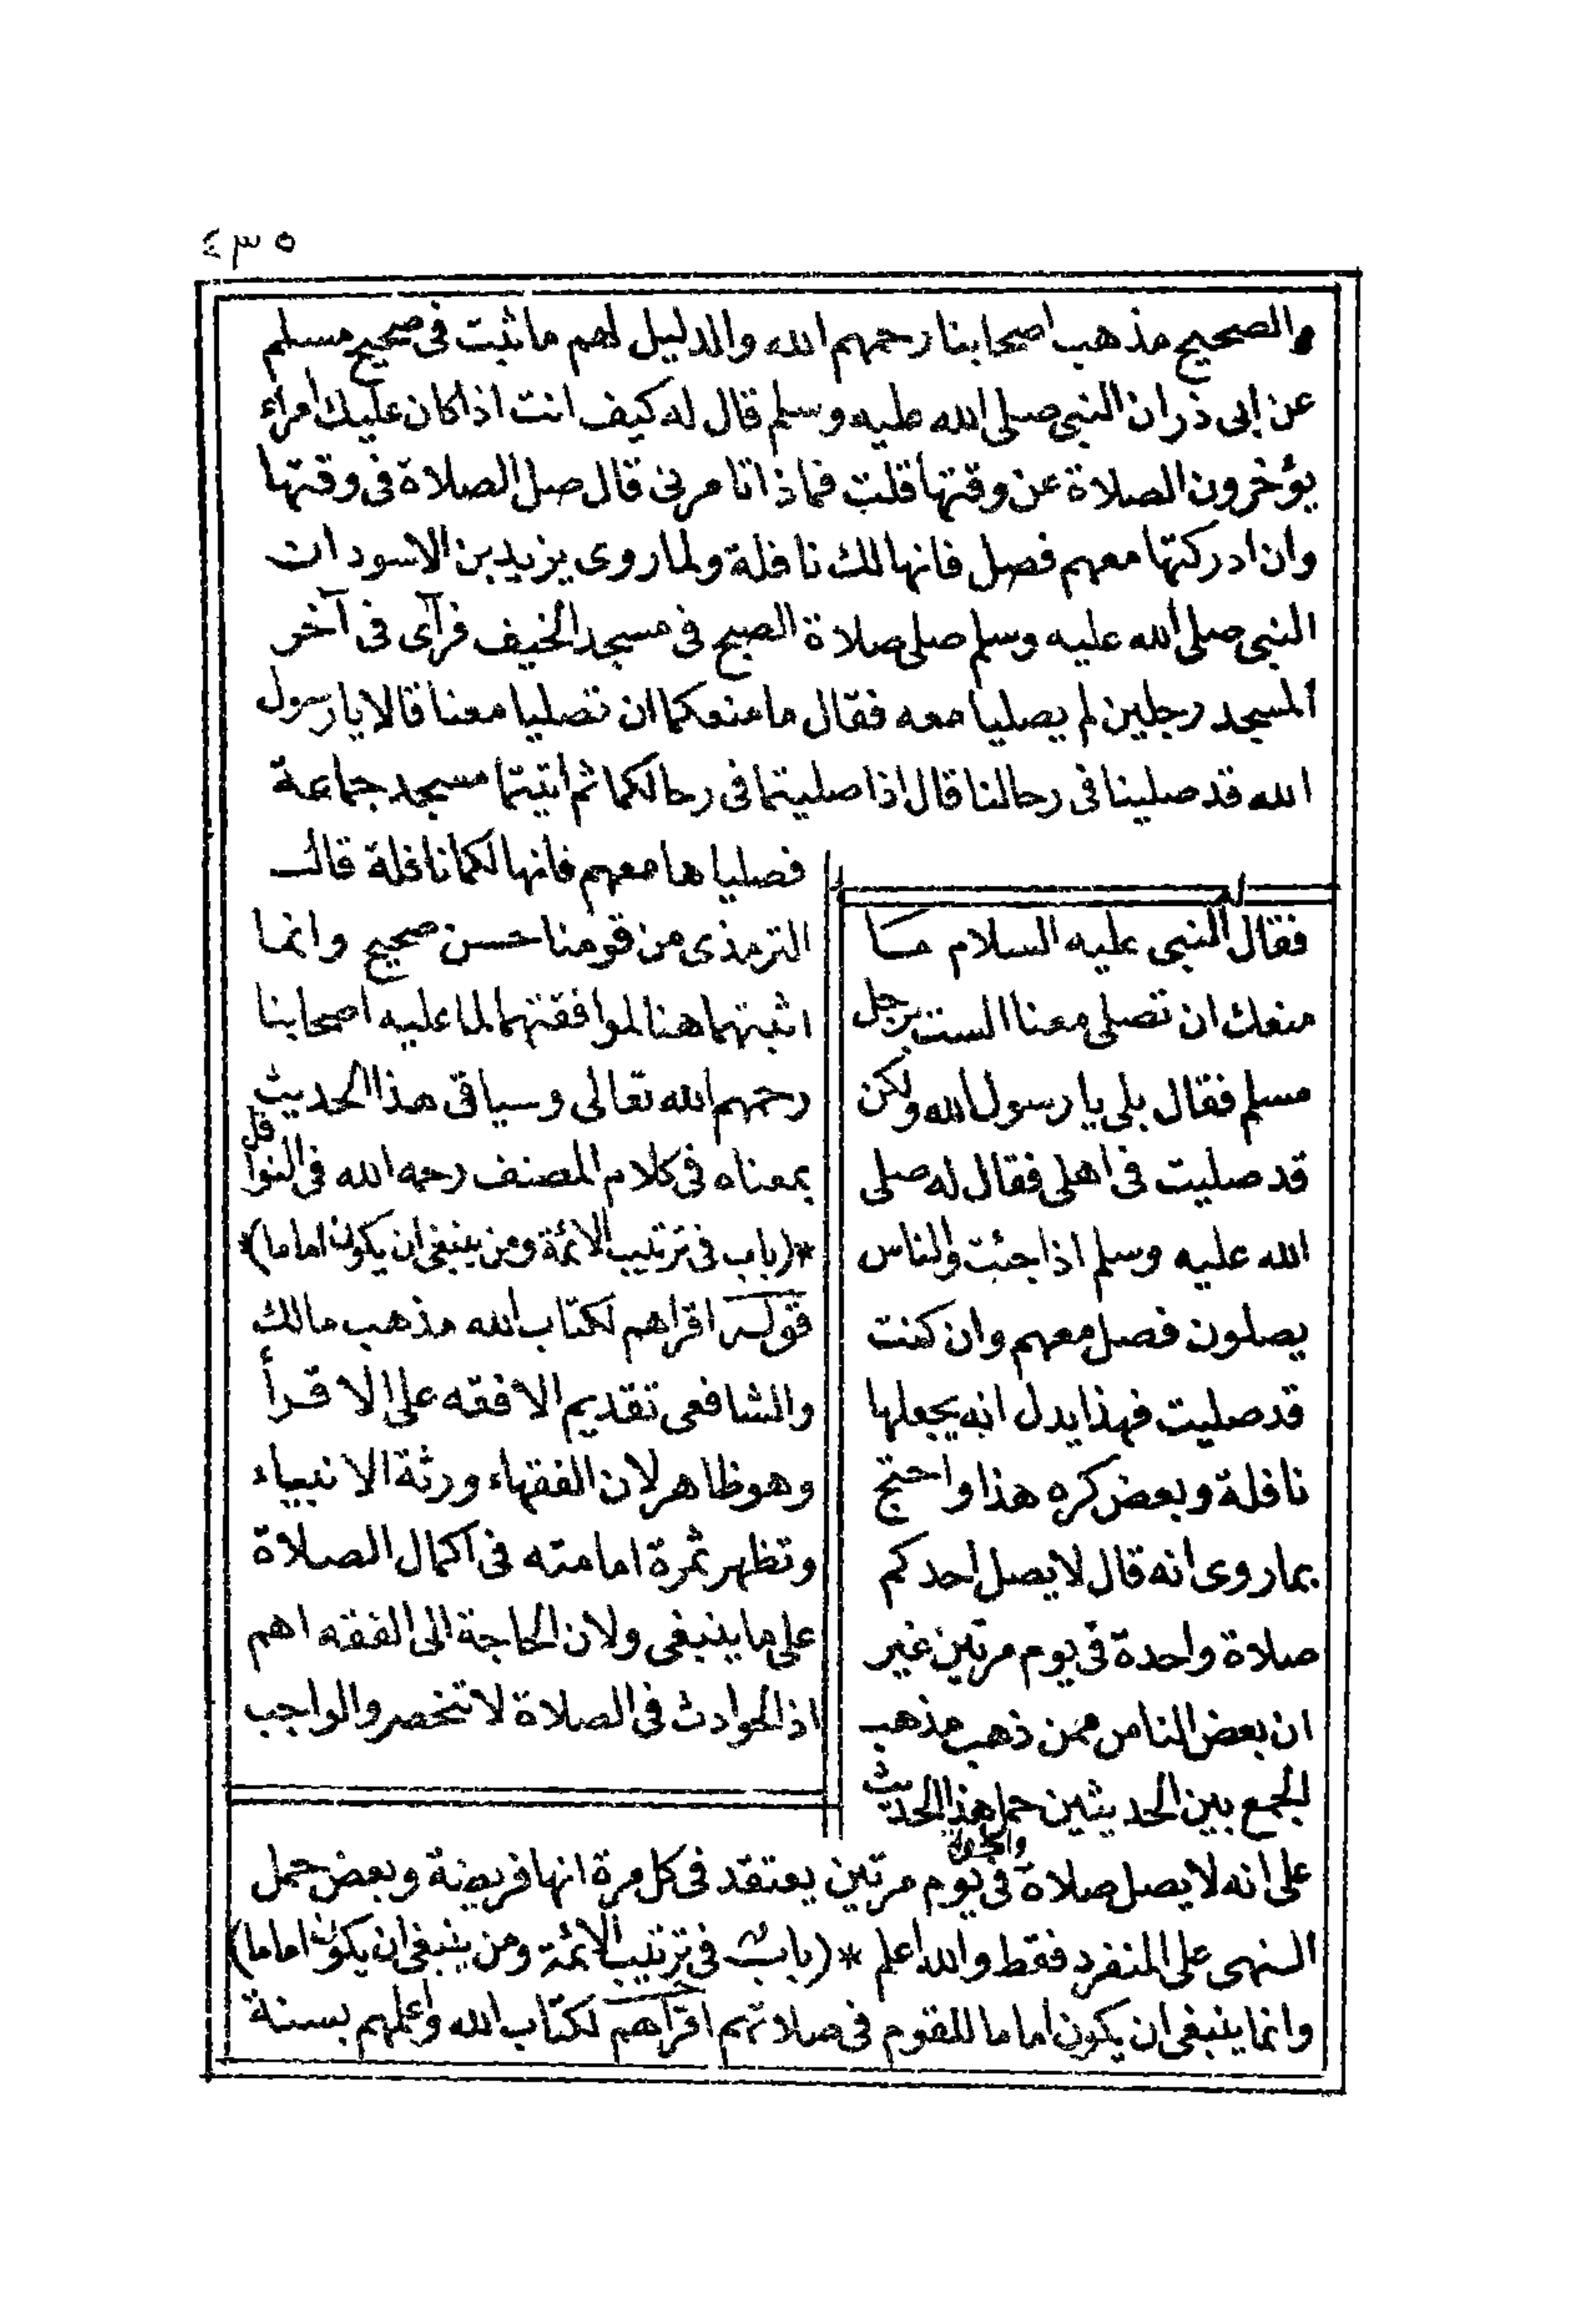 ٤٣٥
والصحيح مذهب اصحابنا رحمهم الله والدليل لهم ما ثبت فى صحيح مسلم
عن ابى ذر ان النبى صلى الله عليه وسلم قال له كيف انت اذا كان عليك امراء
يؤخرون الصلاة عن وقتها قلت فماذا تامرنى قال صل الصلاة فى وقتها
وان ادركتها معهم فصل فانها لك نافلة ولما روى يزيد بن الاسود ان
النبى صلى الله عليه وسلم صلى صلاة الصبح فى مسجد الخيف فرآى فى آخر
المسجد رجلين لم يصليا معه فقال ما منعكما ان تصليا معنا قالا يا رسول
الله قد صلينا فى رحالنا قال اذا صليتما فى رحالكما ثم اتيتما مسجد جماعة
فصلياها معهم فانها لكما نافلة قال
الترمذى من قومنا حسن صحيح وانما
اثبتهما هنا لموافقتهما لما عليه اصحابنا
رحمهم الله تعالى وسياتى هذا الحديث
بمعناه فى كلام المصنف رحمه الله فى النوافل
*(باب فى ترتيب الائمة ومن ينبغى ان يكون اماما)*
قوله اقراهم لكتاب الله مذهب مالك
والشافعى تقديم الافقه على الاقرأ
وهو ظاهر لان الفقهاء ورثة الانبياء
وتظهر ثمرة امامته فى اكمال الصلاة
على ما ينبغى ولان الحاجة الى الفقه اهم
اذ الحوادث فى الصلاة لا تنحصر والواجب
فقال له النبى عليه السلام ما
منعك ان تصلى معنا الست برجل
مسلم فقال بلى يا رسول الله ولكن
قد صليت فى اهلى فقال له صلى
الله عليه وسلم اذا جئت والناس
يصلون فصل معهم وان كنت
قد صليت فهذا يدل انه يجعلها
نافلة وبعض كره هذا واحتج
بما روى انه قال لا يصل احدكم
صلاة واحدة فى يوم مرتين غير
ان بعض الناس ممن ذهب مذهب
الجمع بين الحديثين حمل هذا الحديث
على انه لا يصل صلاة واحدة فى يوم مرتين يعتقد فى كل مرة انها فريضة وبعض حمل
النهى على المنفرد فقط والله اعلم *(باب فى ترتيب الائمة ومن ينبغى ان يكون اماما)
وانما ينبغى ان يكون اماما للقوم فى صلاتهم اقراهم لكتاب الله واعلمهم بسنة